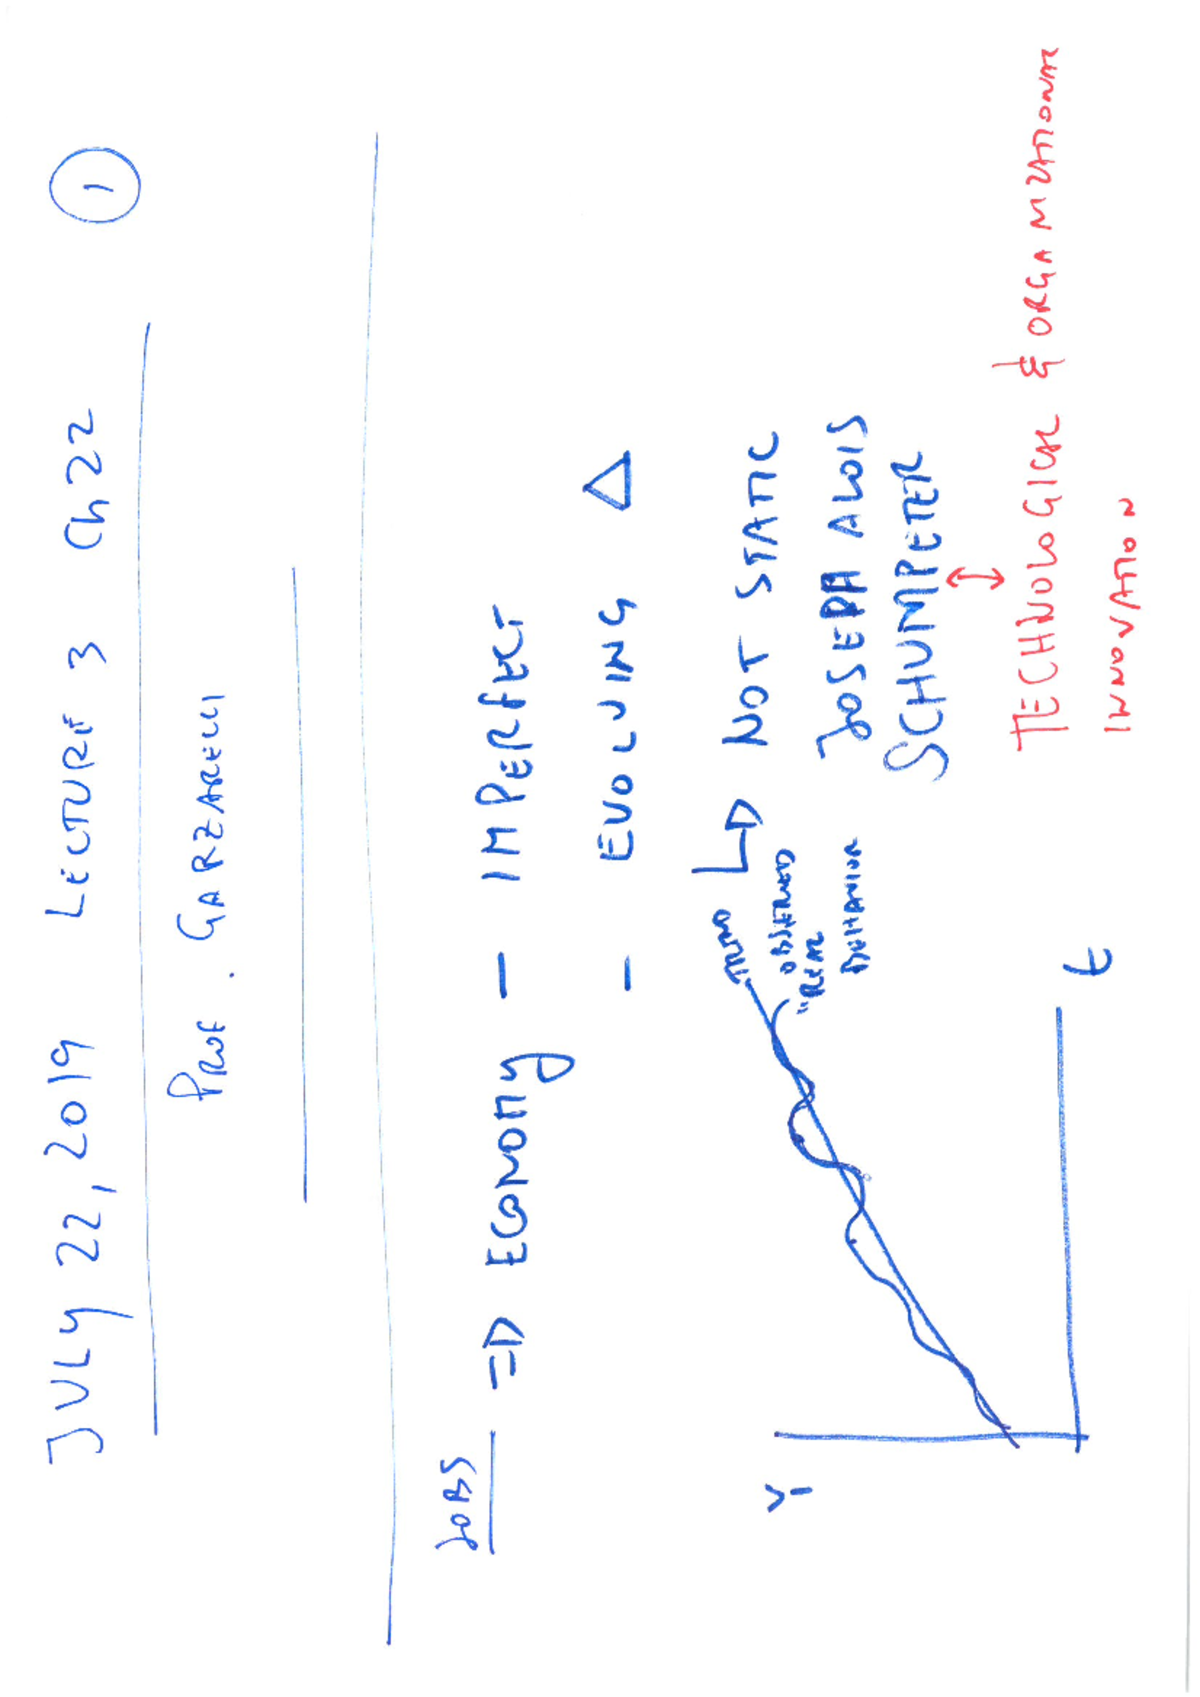 JULY 22, 2019 LECTURE 3 Ch 22 1
PROF. GARZARELLI
JOBS
=> ECONOMY - IMPERFECT
- EVOLVING Δ
↳ NOT STATIC
JOSEPH ALOIS
SCHUMPETER
↔
TECHNOLOGICAL & ORGANIZATIONAL
INNOVATION
Y
TREND
OBSERVED
"REAL
BEHAVIOR
t